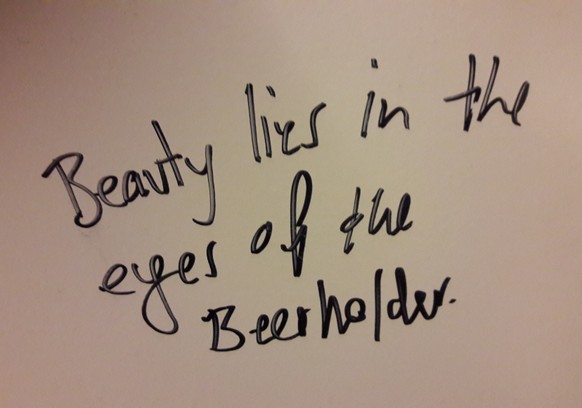 Beauty lies in the
eyes of the
Beerholder.